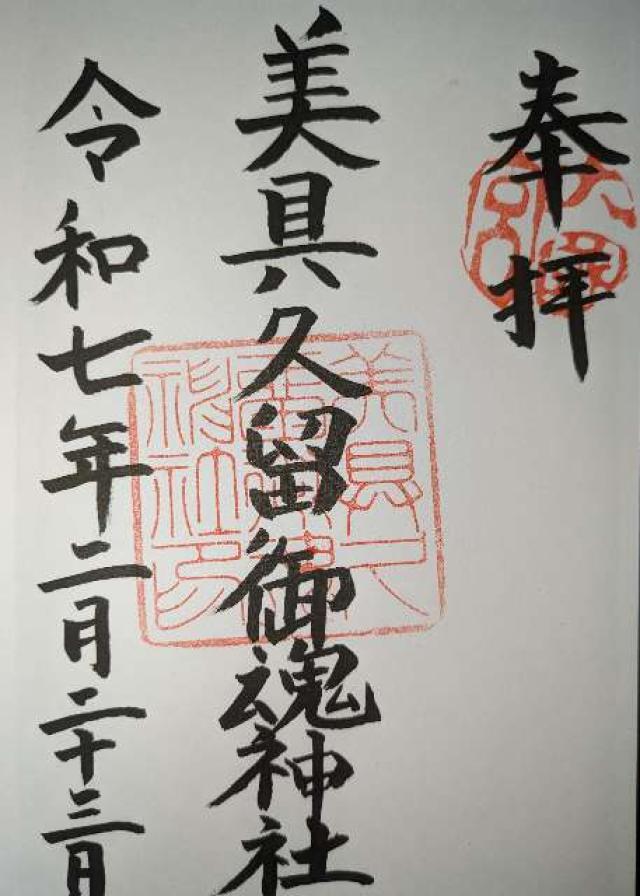 奉拝
美具久留御魂神社
令和七年二月二十三日